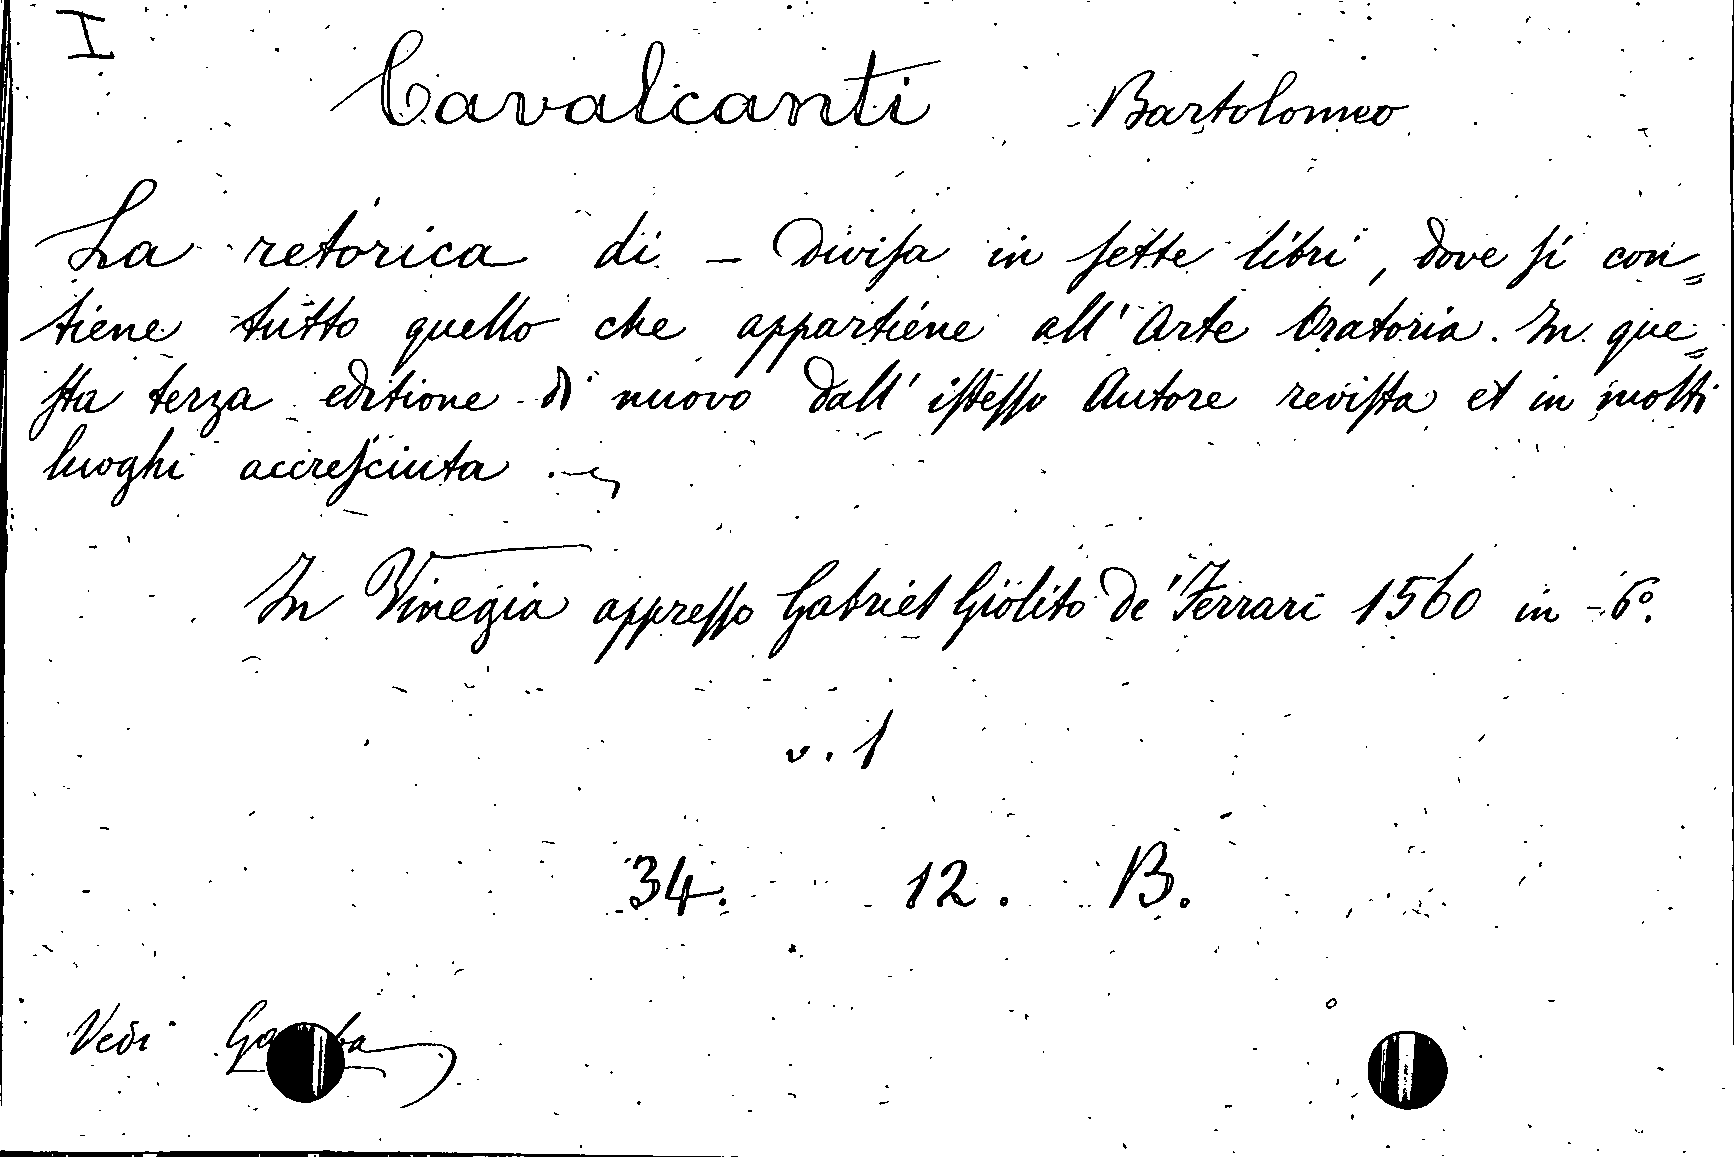 I
Cavalcanti Bartolomeo
La retorica di – Divisa in sette libri, dove si con=
tiene tutto quello che appartiene all' Arte Oratoria. In que=
sta terza editione di nuovo dall' istesso Autore revista et in molti
luoghi accresciuta .
In Vinegia appresso Gabriel Giolito de' Ferrari 1560 in 6°.
v. 1
34. 12. B.
Vedi